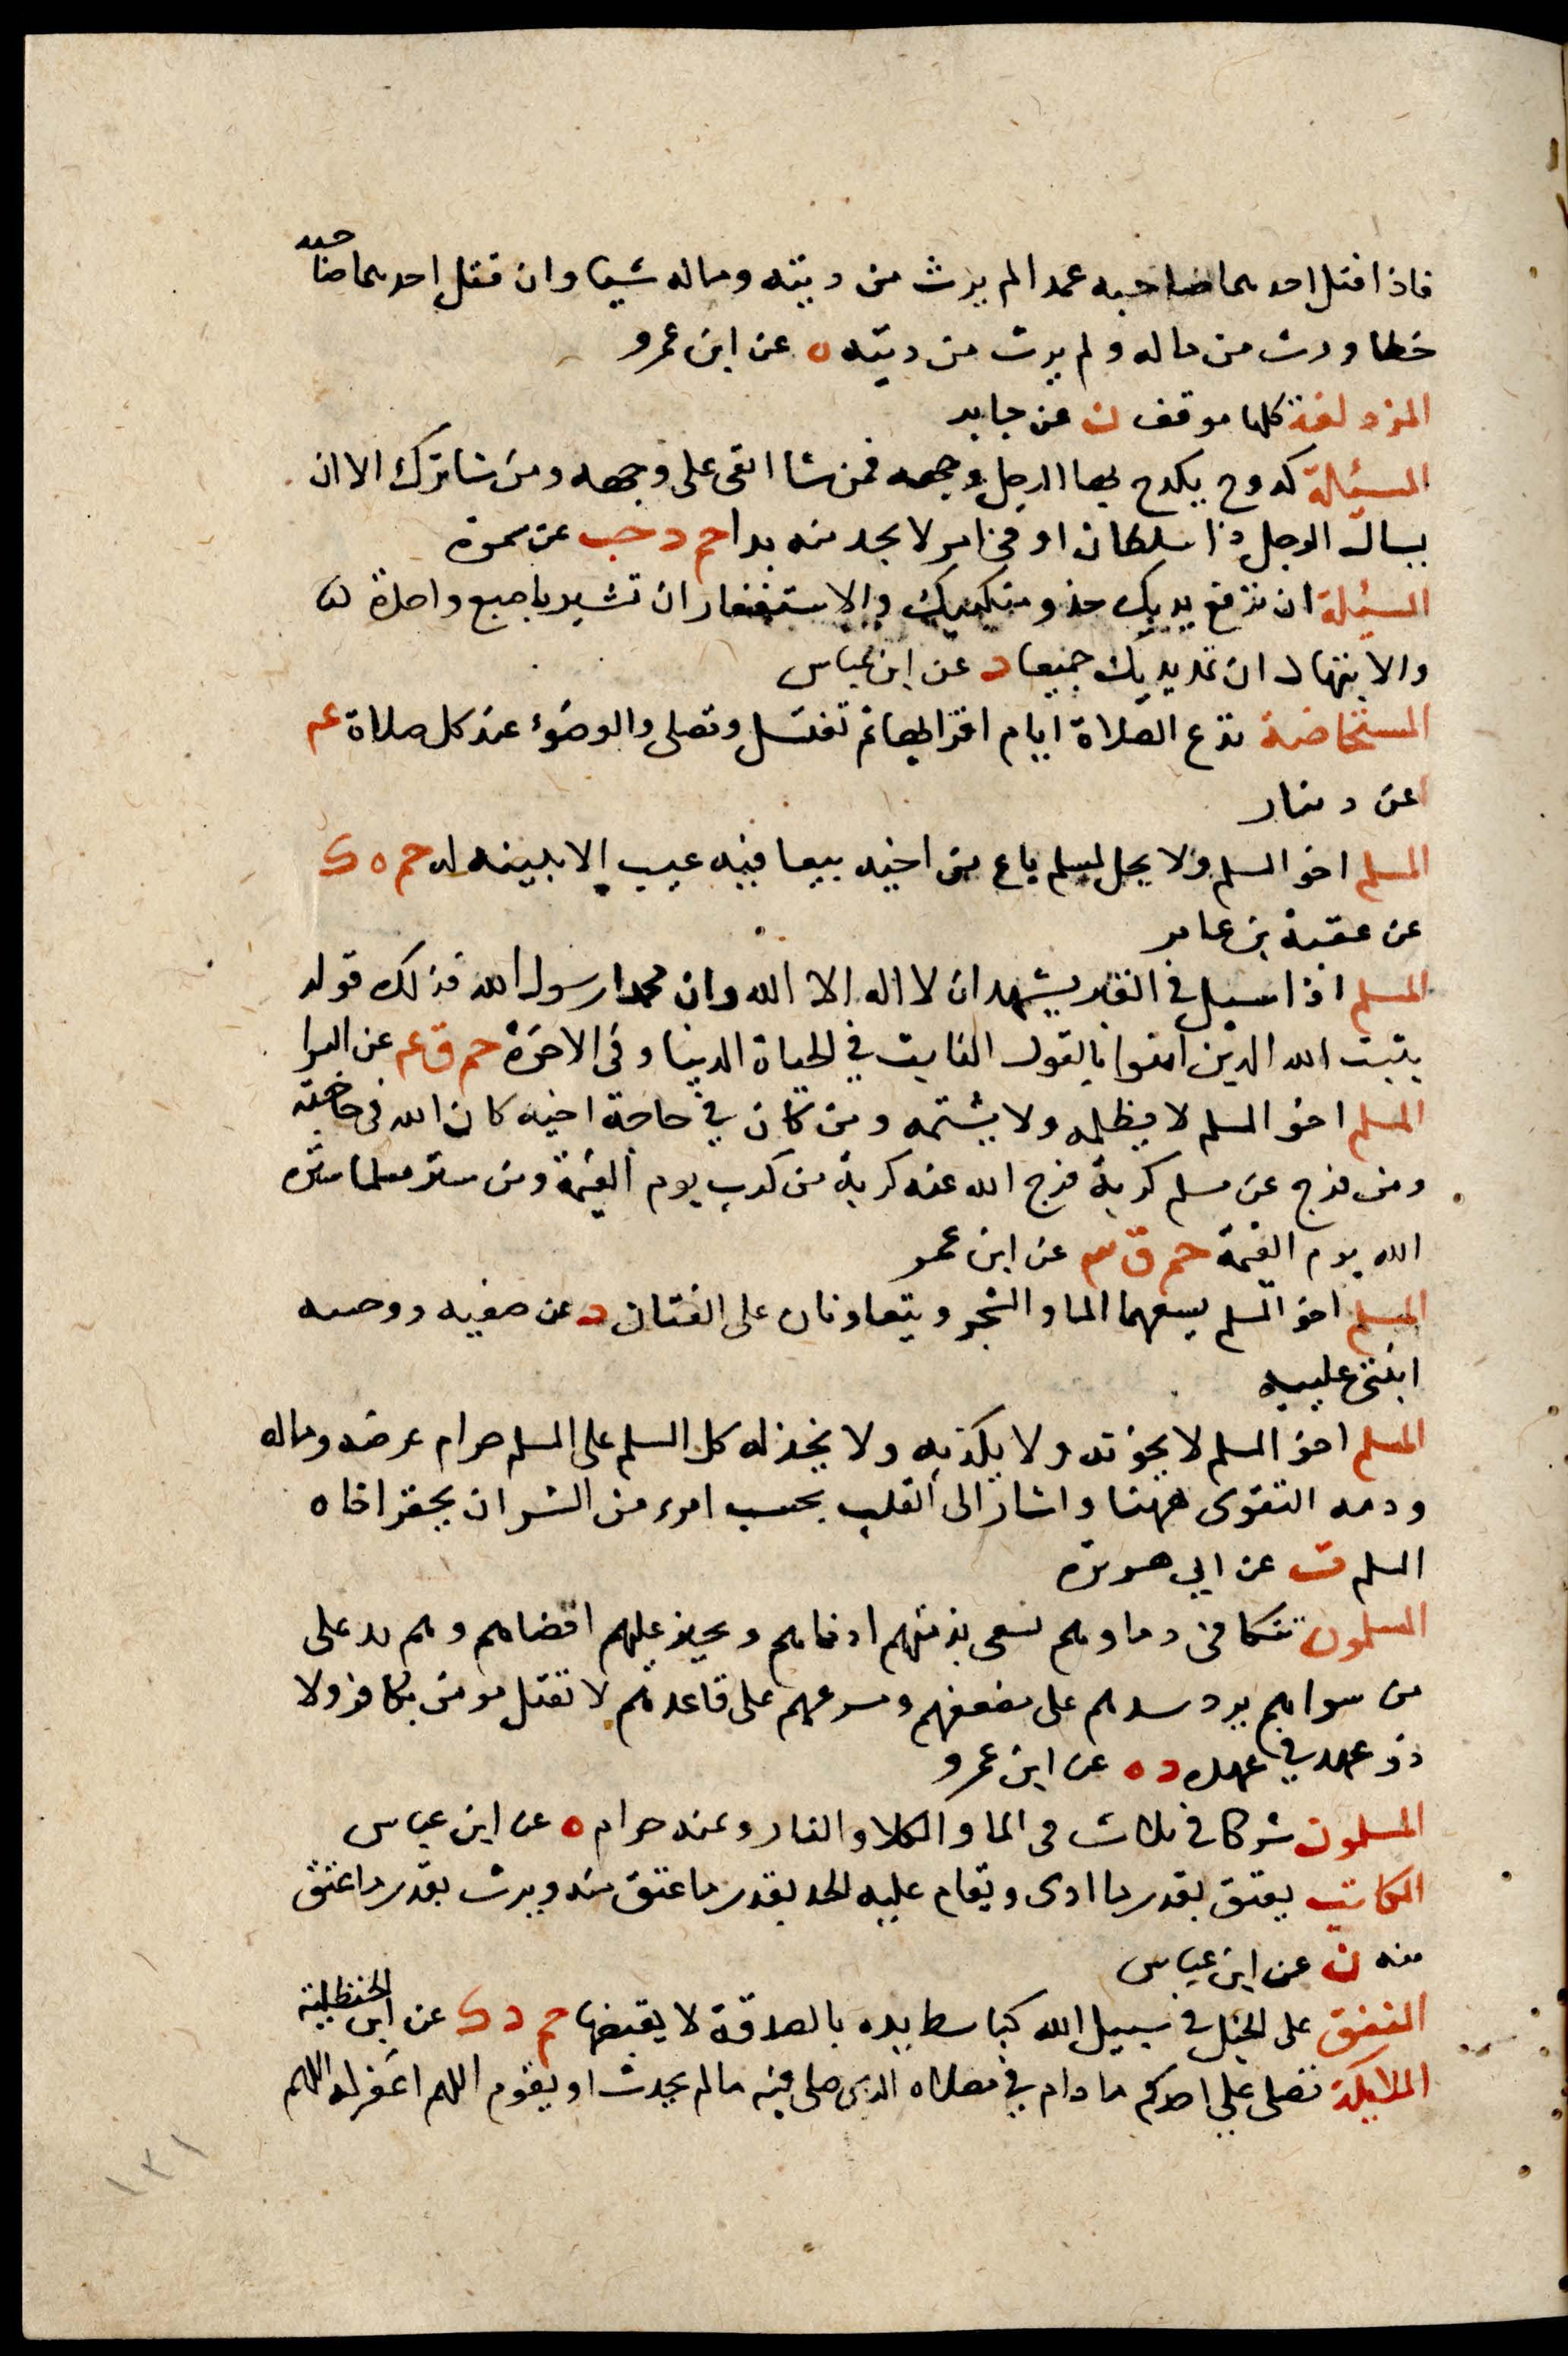 فاذا قتل احدهما صاحبه عمدا لم يرث من ديته وماله شيا وان قتل احدهما صاحبه
خطا ورث من ماله ولم يرث من ديته ه عن ابن عمرو
المزدلفة كلها موقف ن عن جابر
المسئالة كدوح يكدح بها الرجل وجهه فمن شا ابقى على وجهه ومن شا ترك الا ان
يسال الرجل ذا سلطان او في امر لا يجد منه بدا حم د حب عن سمرة
المسئلة ان ترفع يديك حذو منكبيك والاستغفار ان تشير باصبع واحدة
والابتهال ان تمد يديك جميعا د عن ابن عباس
المستحاضة تدع الصلاة ايام اقرايها ثم تغتسل وتصلى والوضوء عند كل صلاة عم
عن دينار
المسلم اخو المسلم ولا يحل لمسلم باع من اخيه بيعا فيه عيب الا بينه له حم ه ك
عن عقبة بن عامر
المسلم اذا سيل في القبر يشهد ان لا اله الا الله وان محمدا رسول الله فذلك قوله
يثبت الله الذين امنوا بالقول الثابت في الحياة الدنيا وفي الاخرة حم ق عم عن البرا
المسلم اخو المسلم لا يظلمه ولا يشتمه ومن كان في حاجة اخيه كان الله في حاجته
ومن فرج عن مسلم كربة فرج الله عنه كربة من كرب يوم القيمة ومن ستر مسلما ستره
الله يوم القيمة حم ق عن ابن عمر
المسلم اخو المسلم يسعهما الما والشجر ويتعاونان على الفتان د عن صفيه ودحيبه
ابنتى عليبه
المسلم اخو المسلم لا يخونه ولا يكذبه ولا يخذله كل المسلم على المسلم حرام عرضه وماله
ودمه التقوى ههنا واشار الى القلب بحسب امرء من الشر ان يحقر اخاه
المسلم ت عن ابي هريرة
المسلمون تتكافى دماوهم يسعى بذمتهم ادناهم ويجيز عليهم اقصاهم وهم يد على
من سواهم يرد مشدهم على مضعفهم ومسرعهم على قاعدهم لا تقتل مومن بكافر ولا
ذو عهد في عهده د ه عن ابن عمرو
المسلمون شركا في ثلاث في الما والكلا والنار وثمنه حرام ه عن ابن عباس
المكاتب يعتق بقدر ما ادى ويقام عليه الحد بقدر ما عتق منه ويرث بقدر ما عتق
منه ن عن ابن عباس
المنفق على الخيل في سبيل الله كباسط يده بالصدقة لا يقبضها حم د ك عن ابن الحنظلية
الملايكة تصلى على احدكم ما دام في مصلاه الذى صلى فيه ما لم يحدث او يقوم اللهم اغفر له اللهم
١٣١